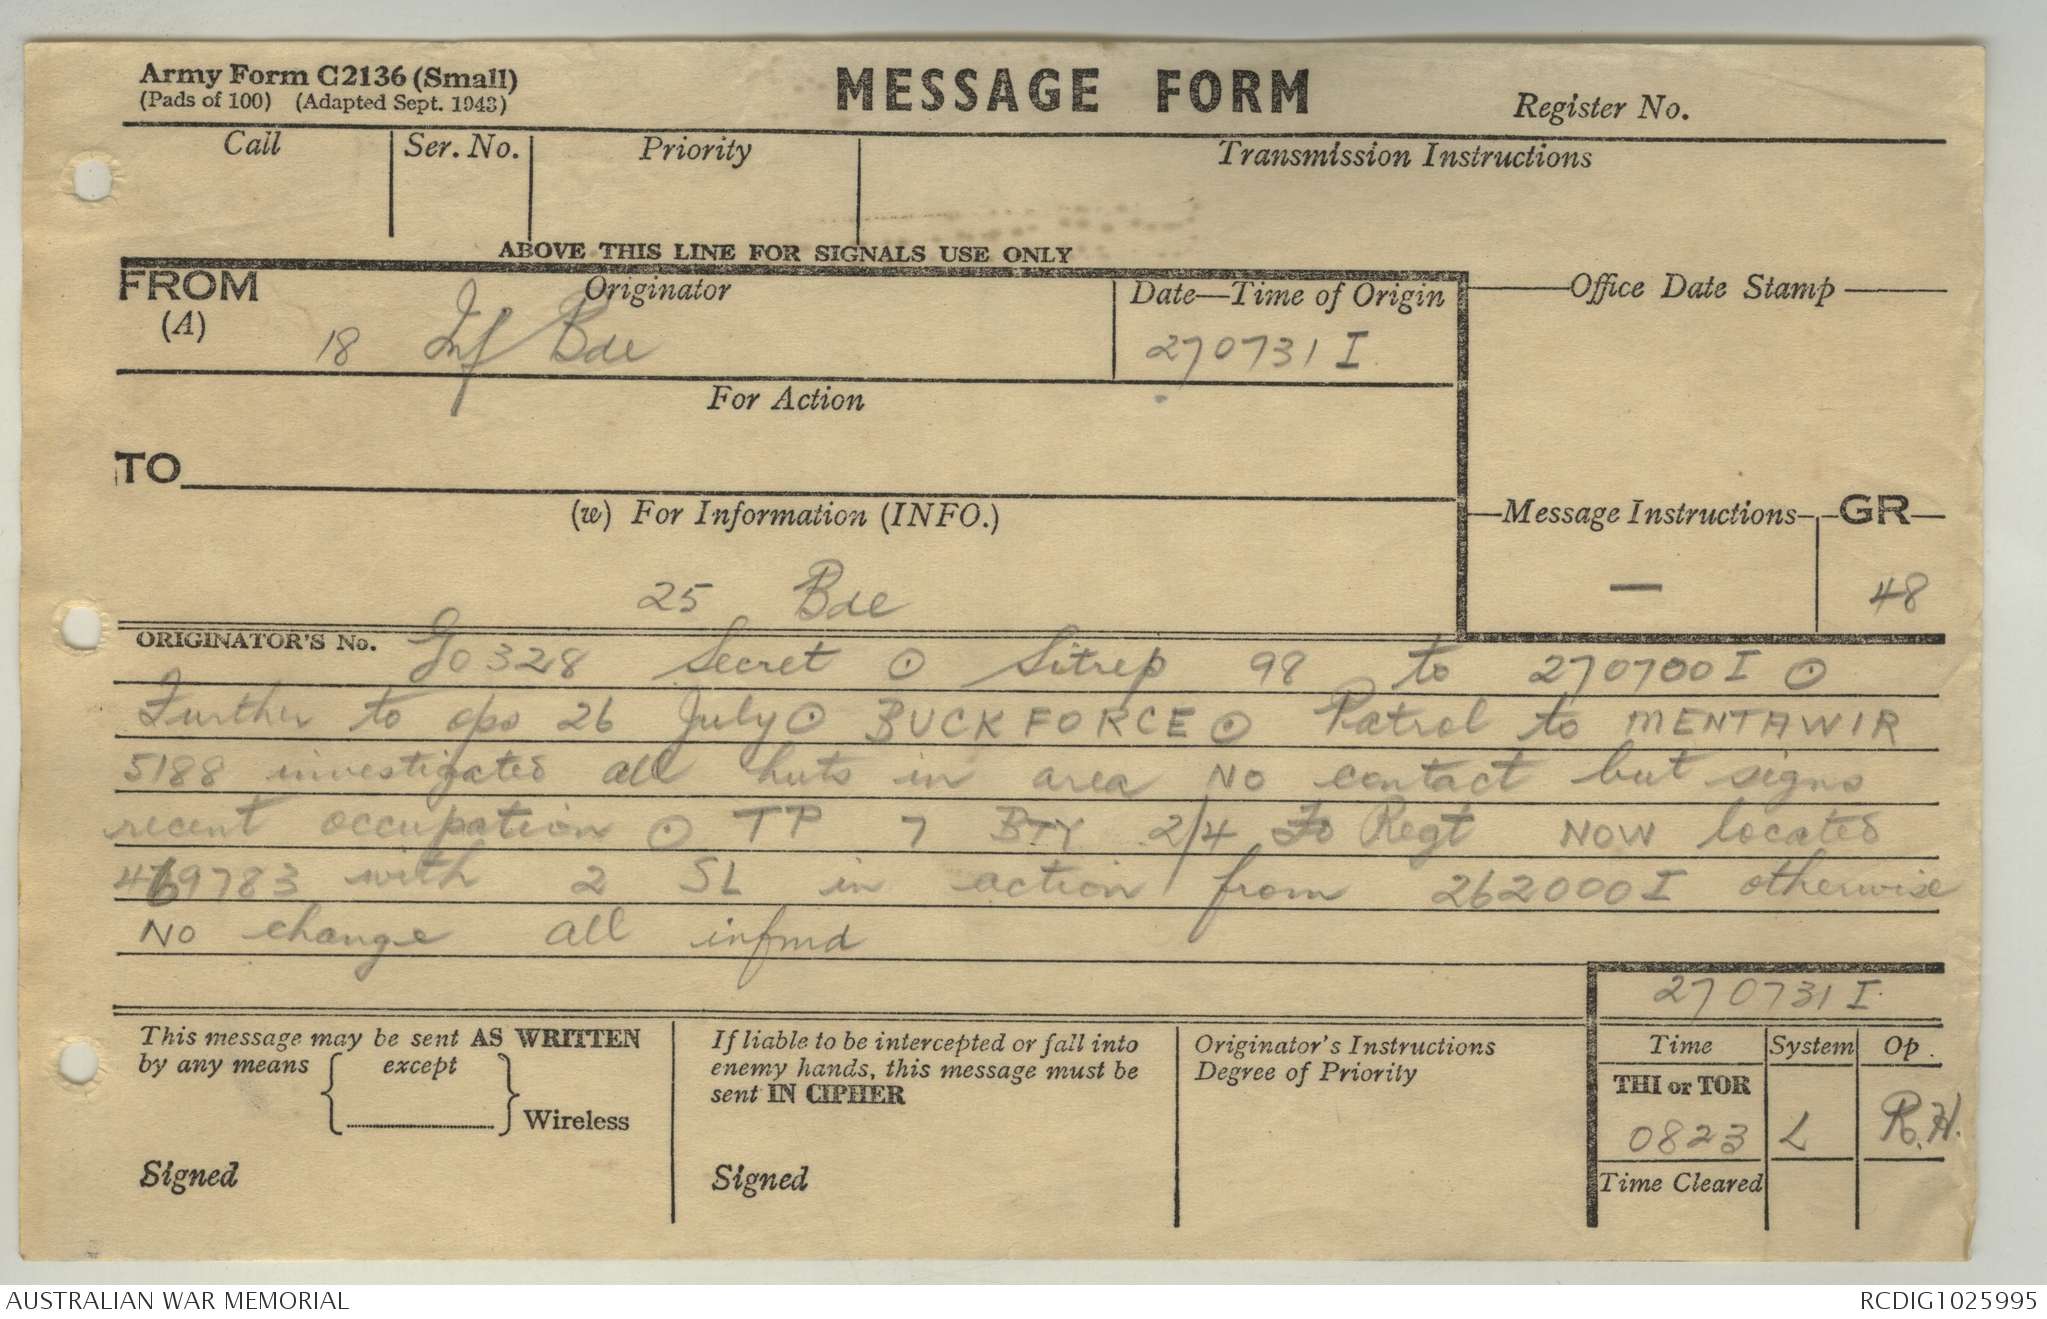 Army Form C2136 (Small)
(Pads of 100) (Adapted Sept. 1943)
MESSAGE FORM
Register No.
Call
Ser. No.
Priority
Transmission Instructions
ABOVE THIS LINE FOR SIGNALS USE ONLY
FROM
(A)
Originator
18 Inf Bde
Date—Time of Origin
270731 I
Office Date Stamp
For Action
TO
(w) For Information (INFO.)
25 Bde
Message Instructions
—
GR
48
ORIGINATOR'S No. Go328 Secret ⊙ Sitrep 98 to 270700I ⊙
Further to ops 26 July ⊙ BUCKFORCE ⊙ Patrol to MENTAWIR
5188 investigated all huts in area NO contact but signs
recent occupation ⊙ TP 7 BTY 2/4 Fd Regt NOW located
469783 with 2 SL in action from 262000I otherwise
NO change all infmd
270731 I
This message may be sent AS WRITTEN
by any means except
Wireless
Signed
If liable to be intercepted or fall into
enemy hands, this message must be
sent IN CIPHER
Signed
Originator's Instructions
Degree of Priority
Time
System
Op.
THI or TOR
0823
L
R.H.
Time Cleared
AUSTRALIAN WAR MEMORIAL
RCDIG1025995